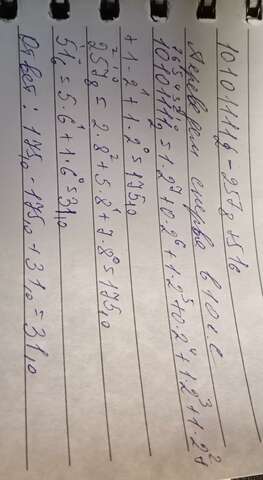 10101111₂ - 257₈ + 51₆
Переведем следую в 10 с.с
10101111₂ = 1·2⁷ + 0·2⁶ + 1·2⁵ + 0·2⁴ + 1·2³ + 1·2² +
+ 1·2¹ + 1·2⁰ = 175₁₀
257₈ = 2·8² + 5·8¹ + 7·8⁰ = 175₁₀
51₆ = 5·6¹ + 1·6⁰ = 31₁₀
Ответ: 175₁₀ - 175₁₀ + 31₁₀ = 31₁₀